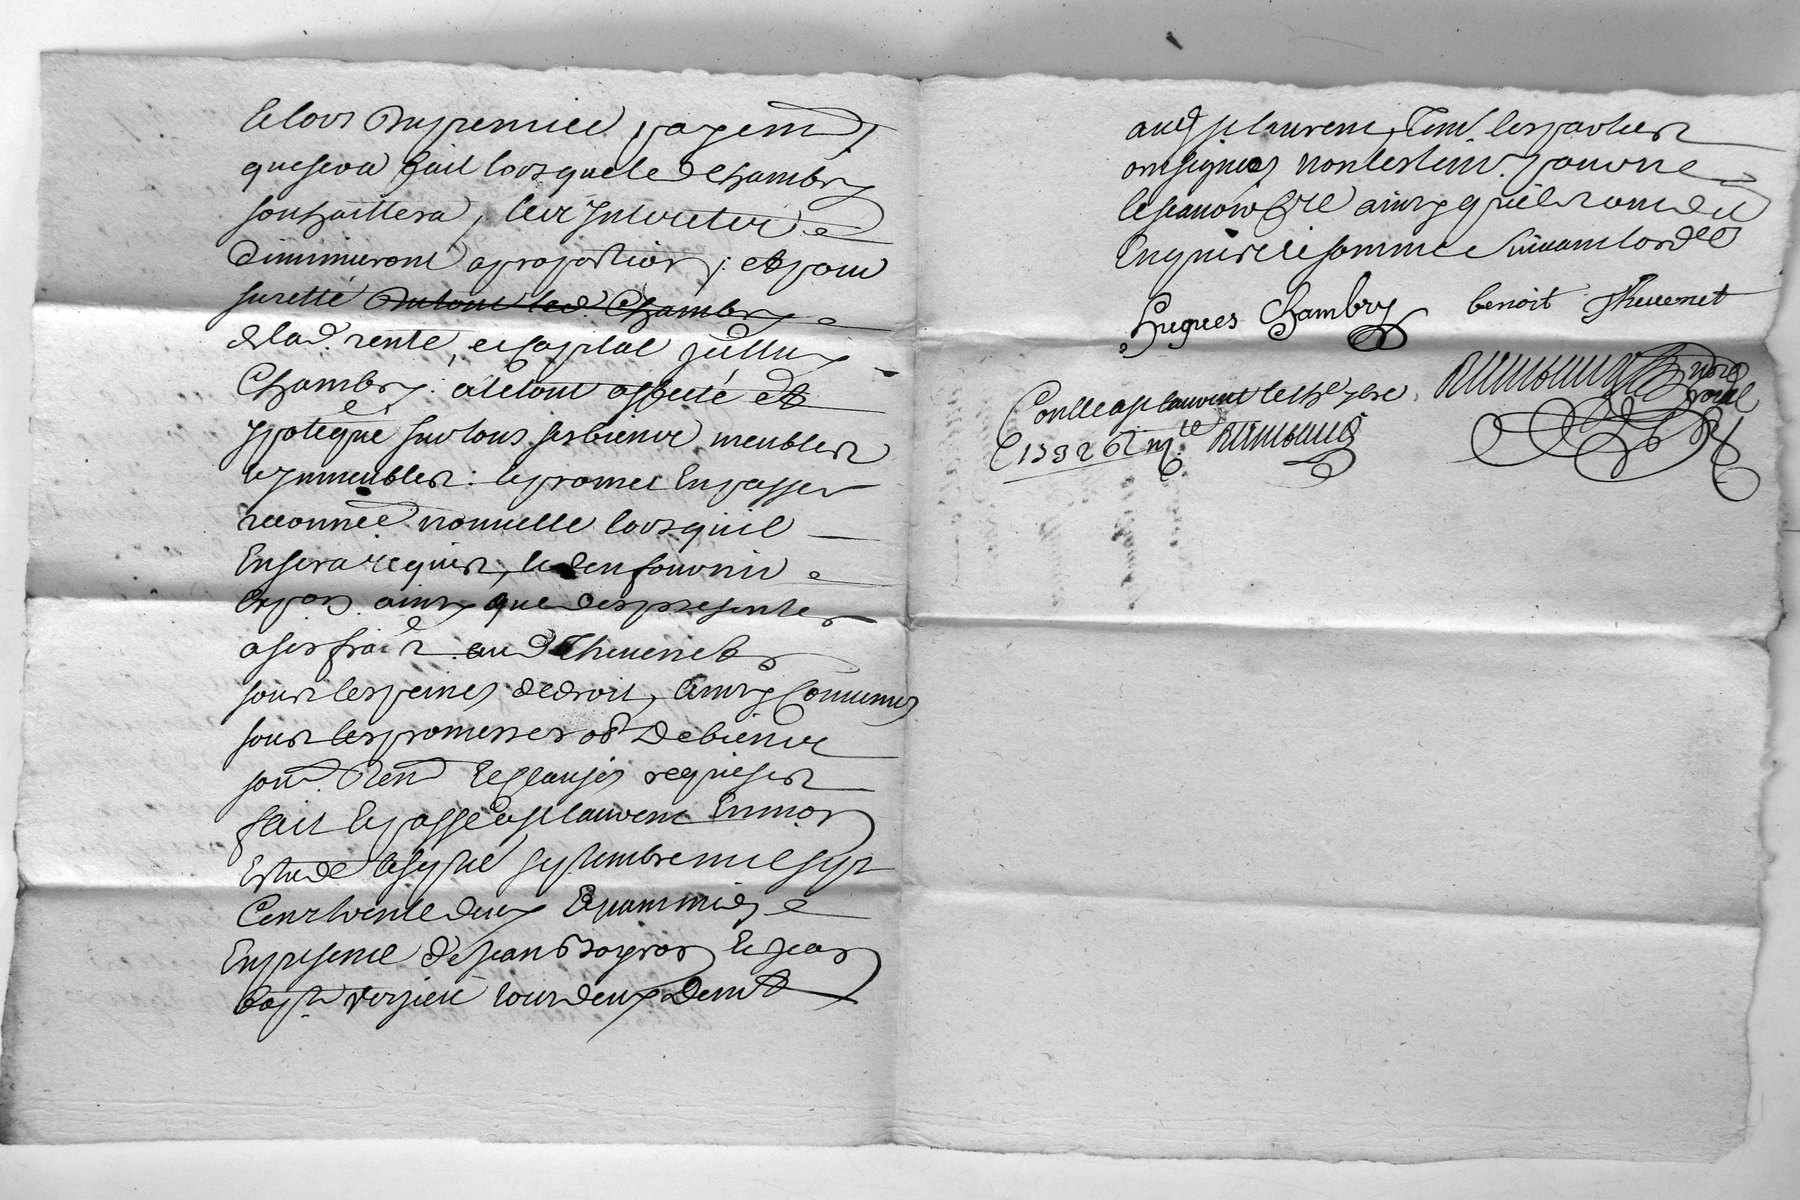 et lors du premier payem.t
que sera fait lorsque led Chambry
souhaittera, les Interets
diminueront a proportion ; et pour
suretté du tout led Chambry
de lad. rente, et capital
Chambry a le tout affecté et
ypotequé sur tous ses biens meubles
et Immeubles : et promet En passer
reconnce nouvelle lorsquil
En sera requis, et den fournir
Expon ainsy que des presentes
a ses frais aud Thevenet
sous les peines de droit, ainsy Convenus
sous les promesses obt de biens
soum. Renon et clauses requises
fait et passé a st laurent En mon
Estude le sept septembre mil sept
Cent trente deux apres midy
En presence de jean et jean
bapt. tous deux demt
aud st laurent, tem. les parties
ont signés non les tem. pour ne
le scavoir fre ainsy quils ont dit
Enquis et sommes suivant lordce
hugues Chambry benoit Thevenet
nore royal
Conlle a st laurent le 7bre
1732